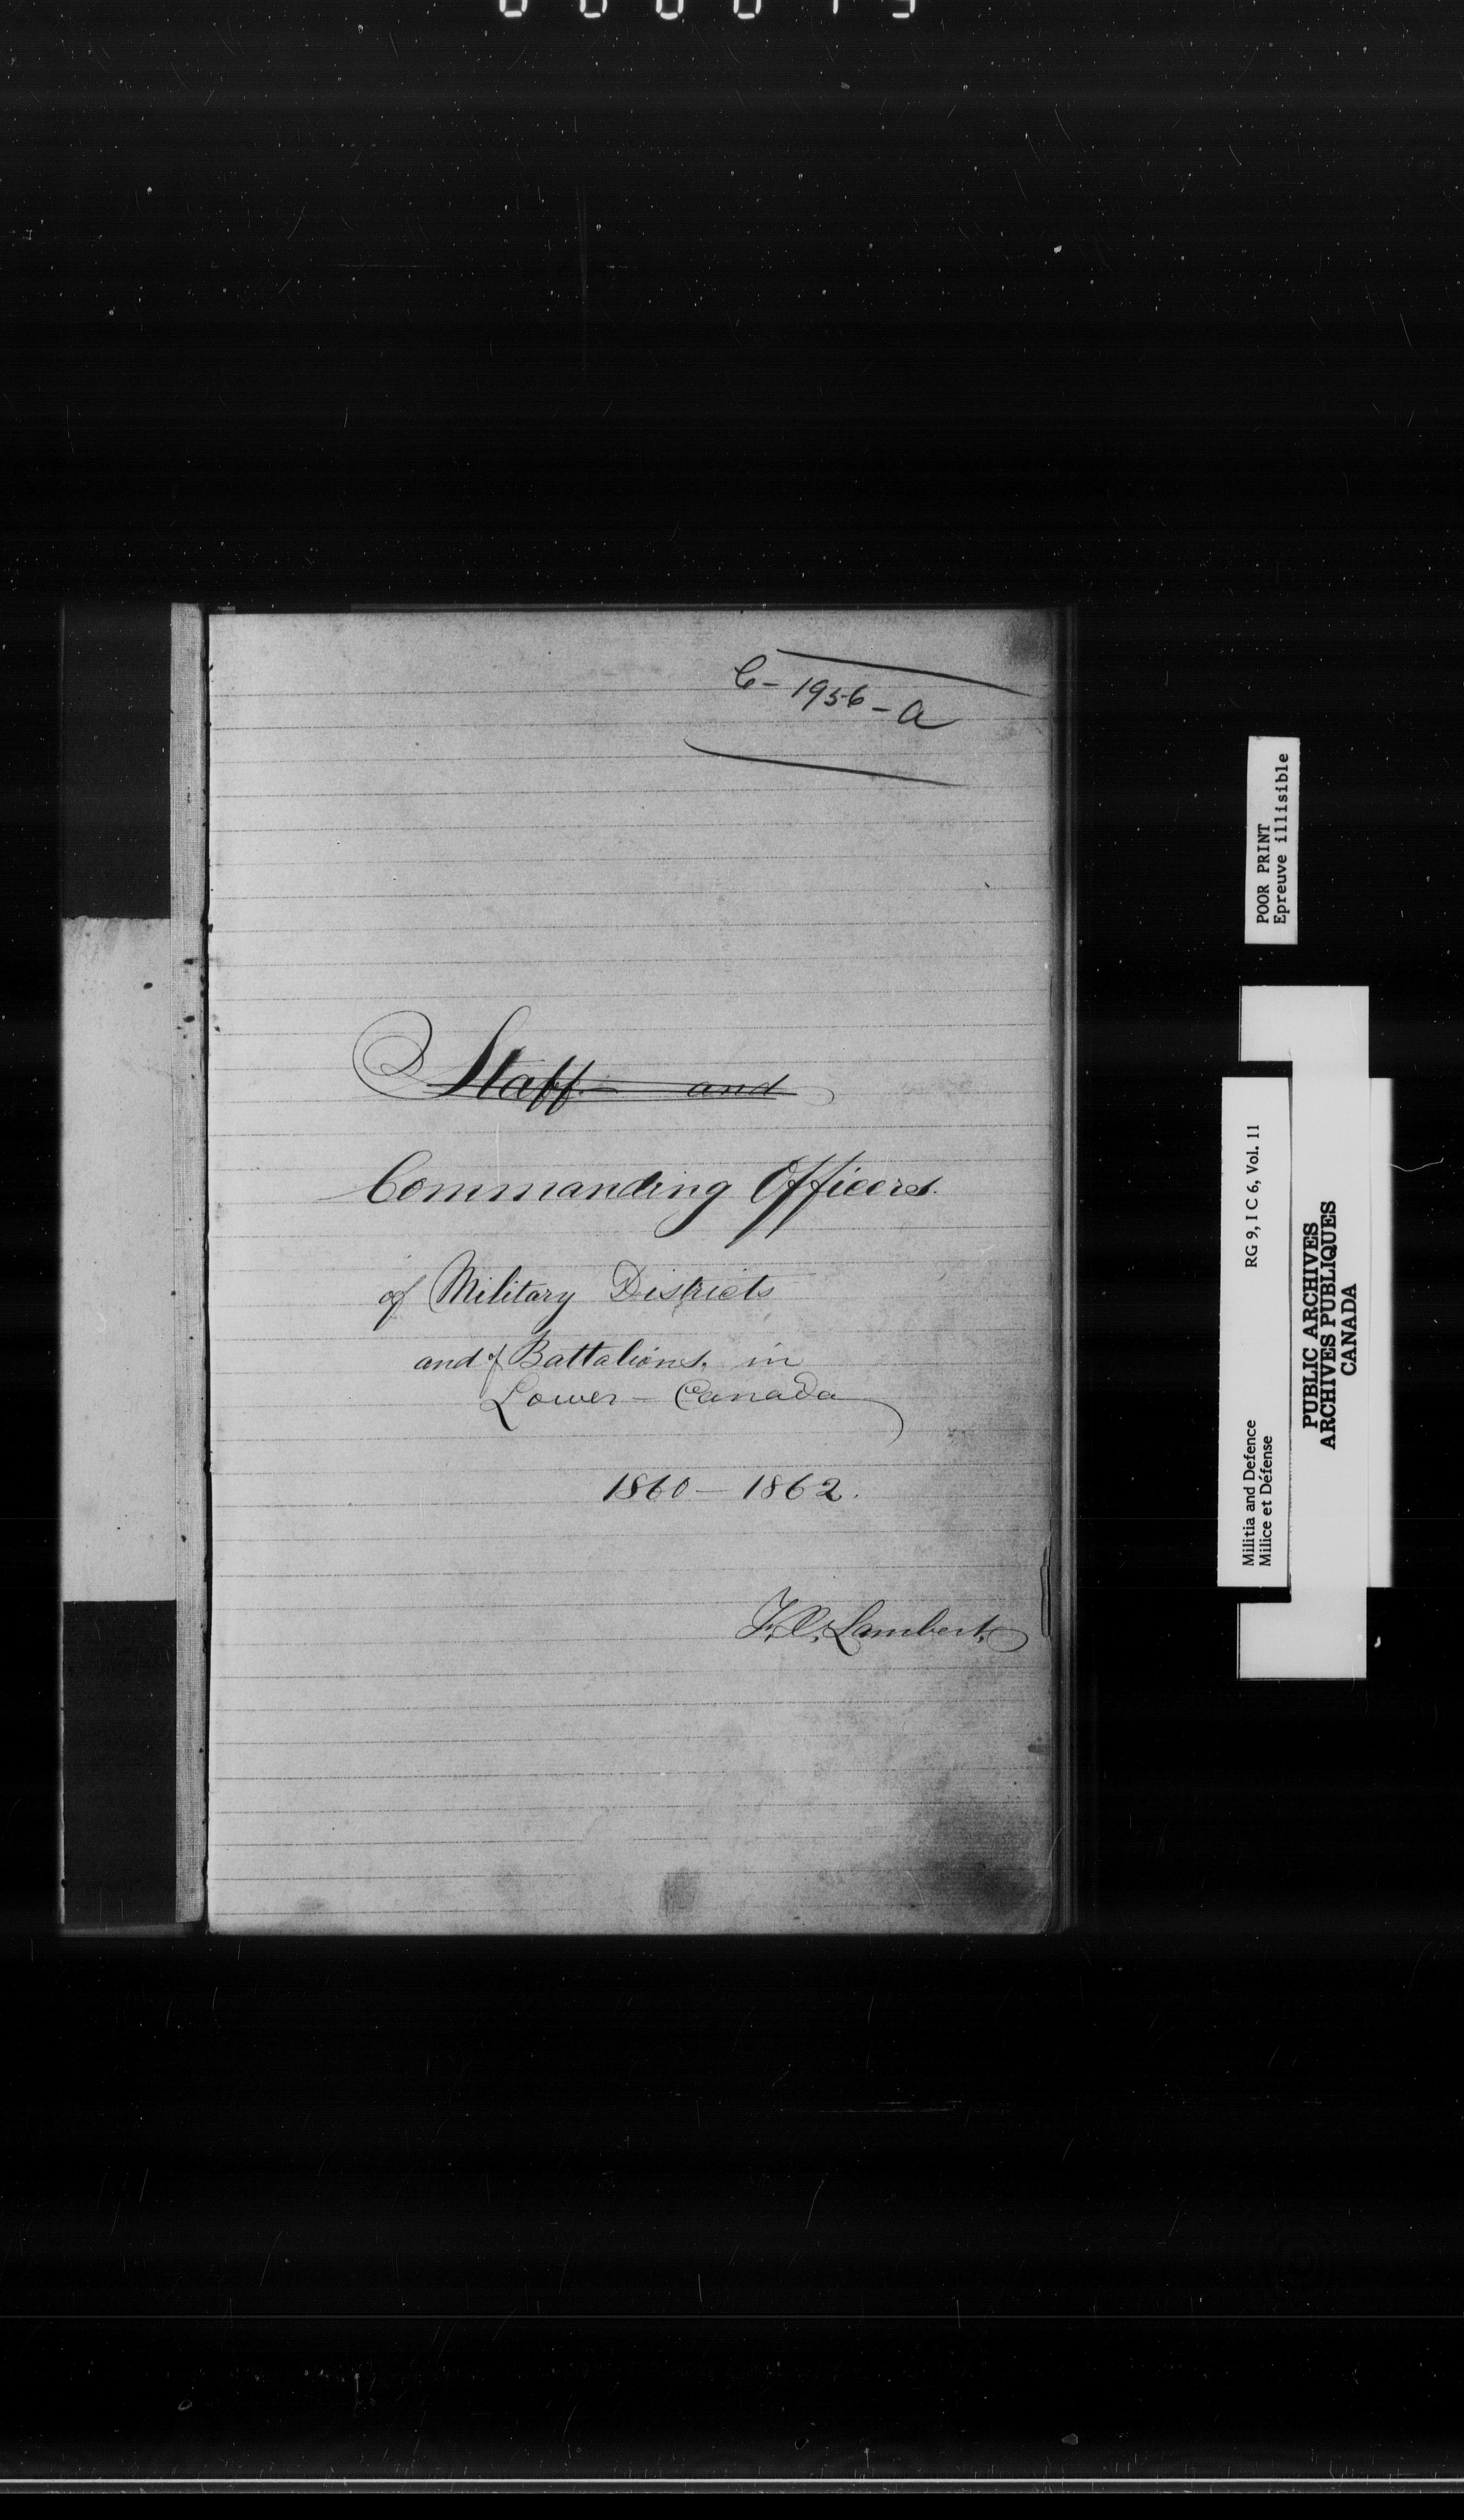 C-1956-a
Staff and
Commanding Officers.
of Military Districts
and of Battalions, in
Lower-Canada
1860-1862.
Lambert,
POOR PRINT
Epreuve illisible
Militia and Defence
Milice et Défense
RG 9, I C 6, Vol. 11
PUBLIC ARCHIVES
ARCHIVES PUBLIQUES
CANADA